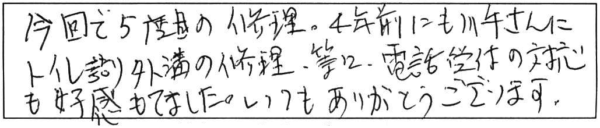 今回で5度目の修理。4年前にも川午さんに
トイレ詰り外溝の修理、等に、電話受付の対応
も好感もてました。いつもありがとうございます。